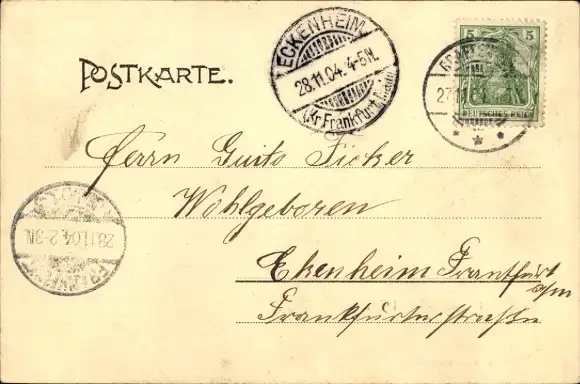 POSTKARTE.
ECKENHEIM
28.11.04. 4-5N.
(Kr. Frankfurt Main)
5 5
DEUTSCHES REICH
27.11
Herrn Guito Ficker
Wohlgeboren
28.11.04. 2-3N.
Ekenheim Frantfurt
a/m
Frankfurterstraße